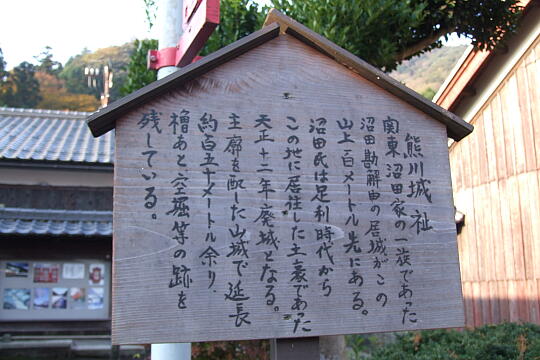 熊川城址
関東沼田家の一族であった
沼田勘解由の居城がこの
山上百メートル先にある。
沼田氏は足利時代から
この地に居住した土豪であった
天正十一年廃城となる。
主廓を配した山城で延長
約百五十メートル余り
櫓あと空堀等の跡を
残している。